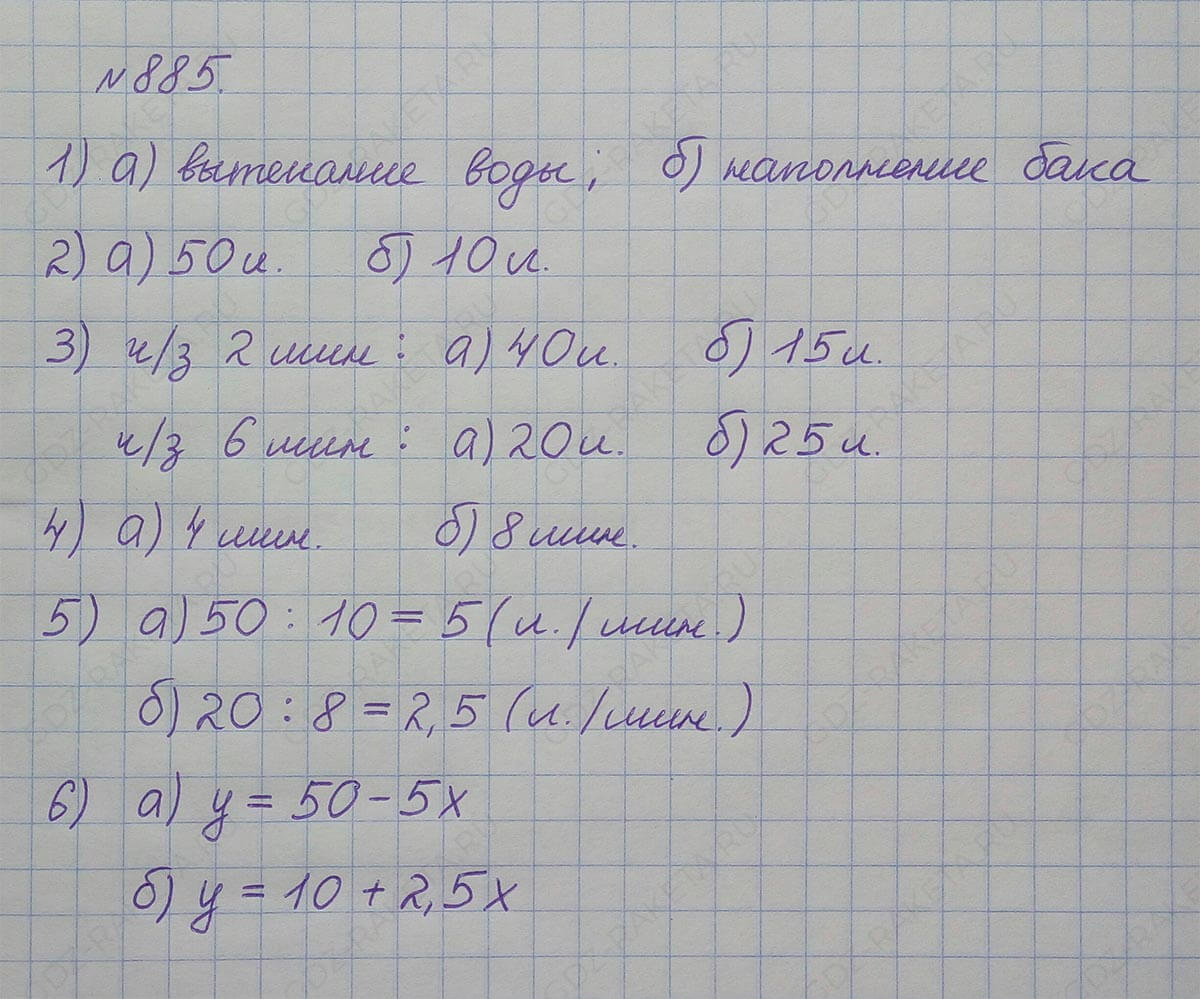 №885.
1) а) вытекание воды; б) наполнение бака
2) а) 50л. б) 10 л.
3) ч/з 2 мин : а) 40л. б) 15л.
ч/з 6 мин : а) 20л. б) 25 л.
4) а) 4 мин. б) 8 мин.
5) а) 50 : 10 = 5 (л./мин.)
б) 20 : 8 = 2,5 (л./мин.)
6) а) у = 50 - 5х
б) у = 10 + 2,5х
GDZ-RAKETA.RU